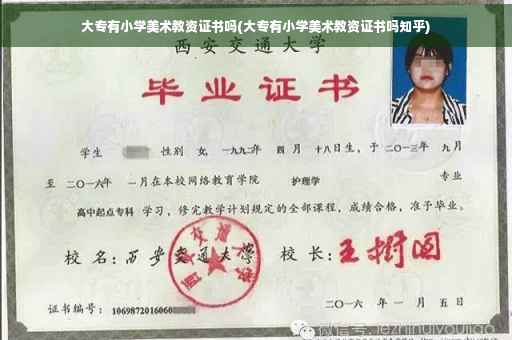 大专有小学美术教资证书吗(大专有小学美术教资证书吗知乎)
西安交通大学
毕业证书
学生 性别 女, 一九九二年 四月 十八日生, 于二〇一三年 九月
至 二〇一六年 一月在本校网络教育学院 护理学 专业
高中起点专科 学习, 修完教学计划规定的全部课程, 成绩合格, 准予毕业。
校 名: 西安交通大学 校 长: 王树国
证书编号: 1069872016060
二〇一六 年 一 月 五 日
微信号: jezhihuiyoujiao